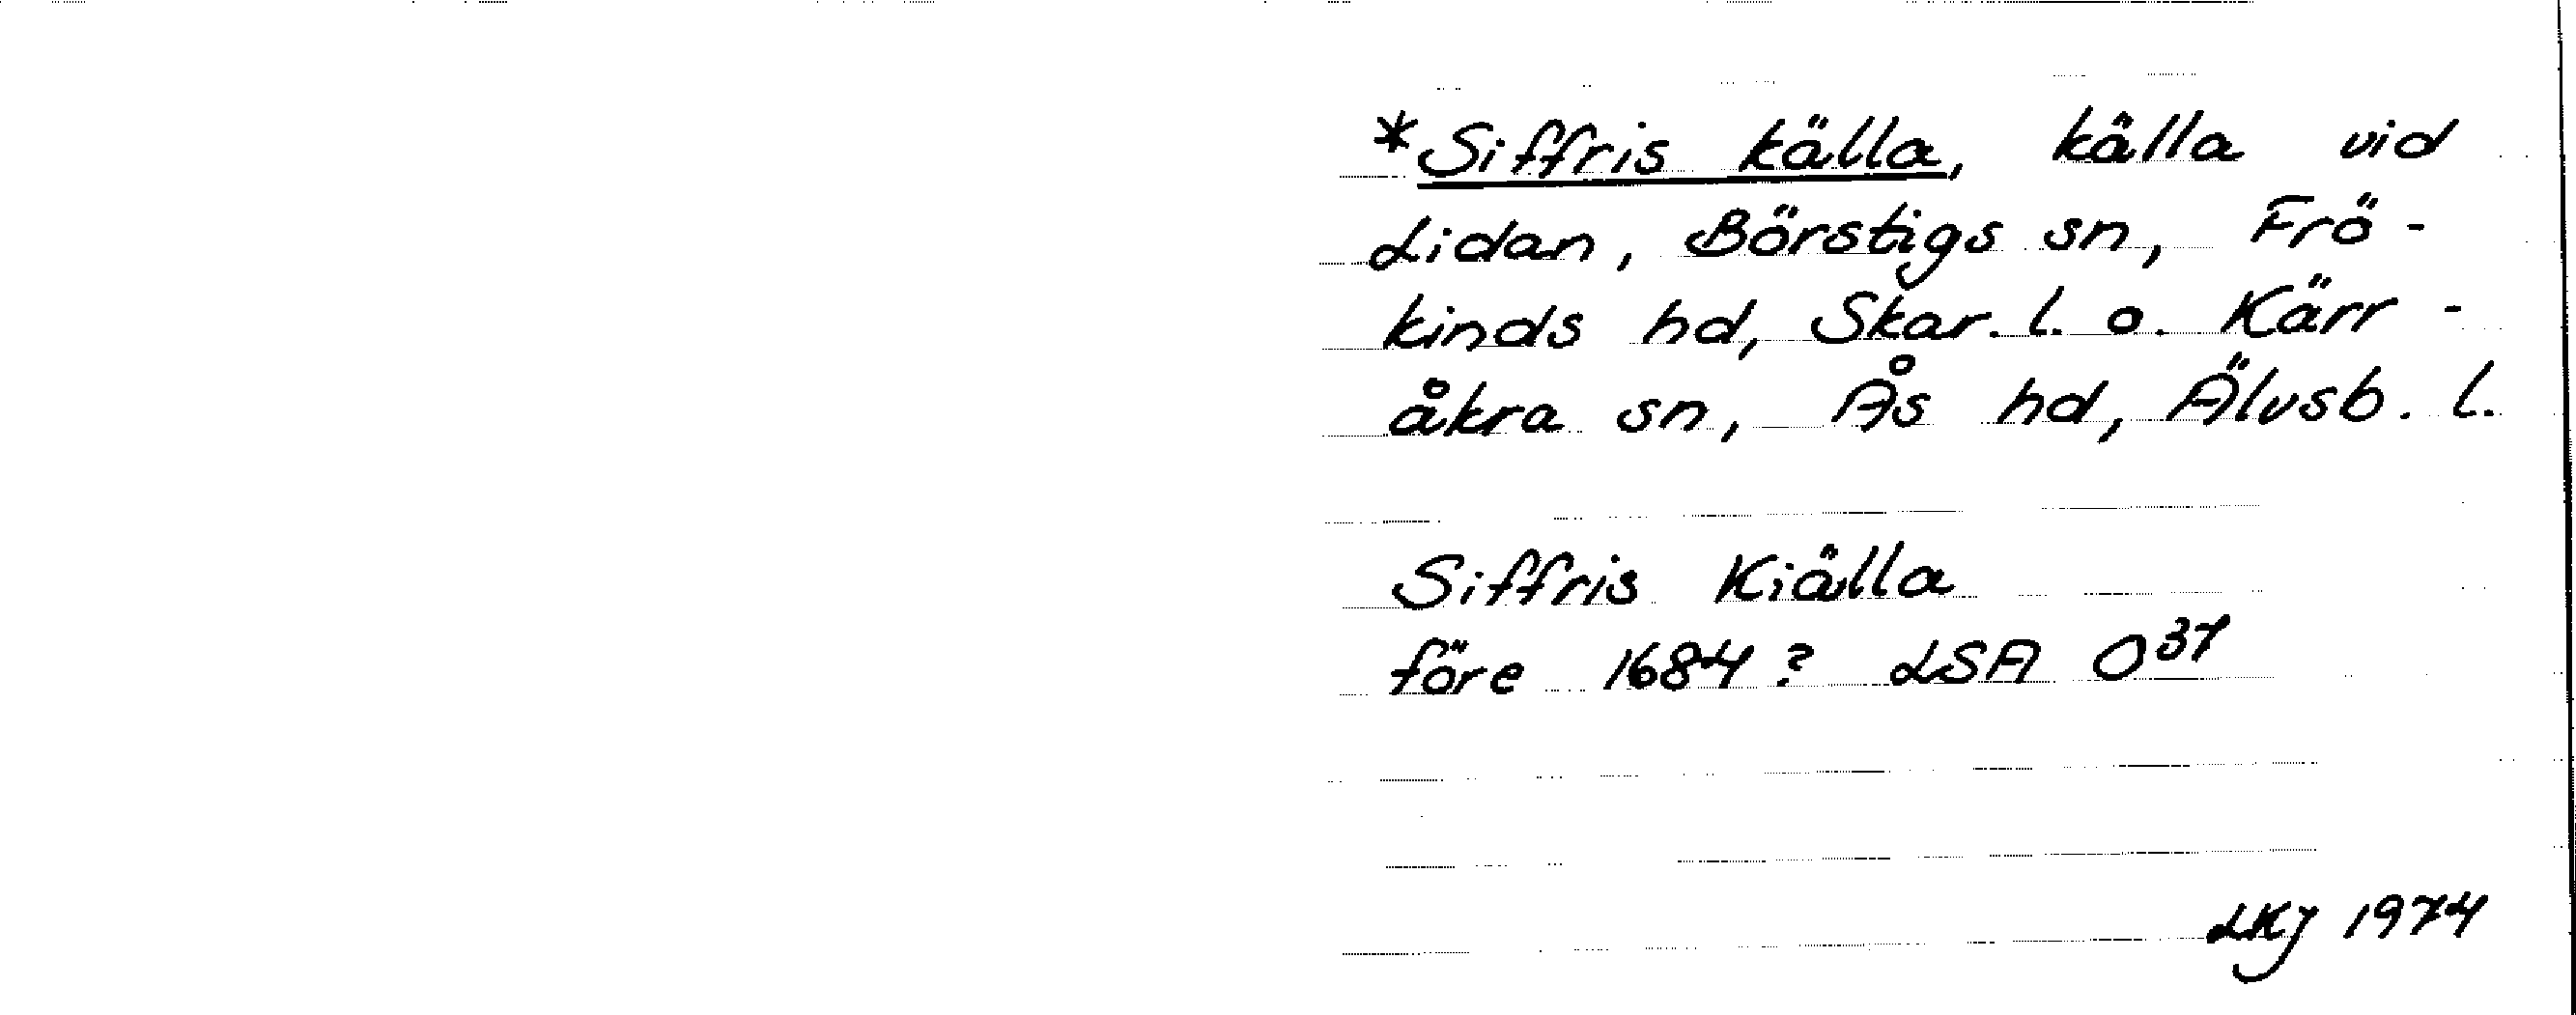 *Siffris källa, källa vid
Lidan, Börstigs sn, Frö-
kinds hd, Skar. l. o. Kärr-
åkra sn, Ås hd, Älvsb. l.
Siffris Kiälla
före 1684? LSA O³⁷
LKJ 1974